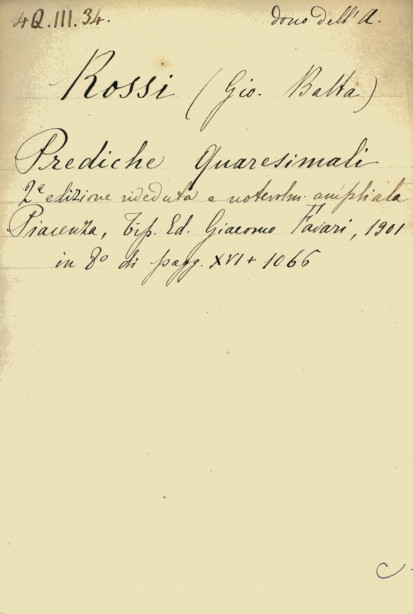 4Q.III.34. dono dell'A.
Rossi (Gio. Batta)
Prediche Quaresimali
2ª edizione riveduta e notevolm. ampliata
Piacenza, Tip. Ed. Giacomo Favari, 1901
in 8º di pagg. XVI + 1066
C.